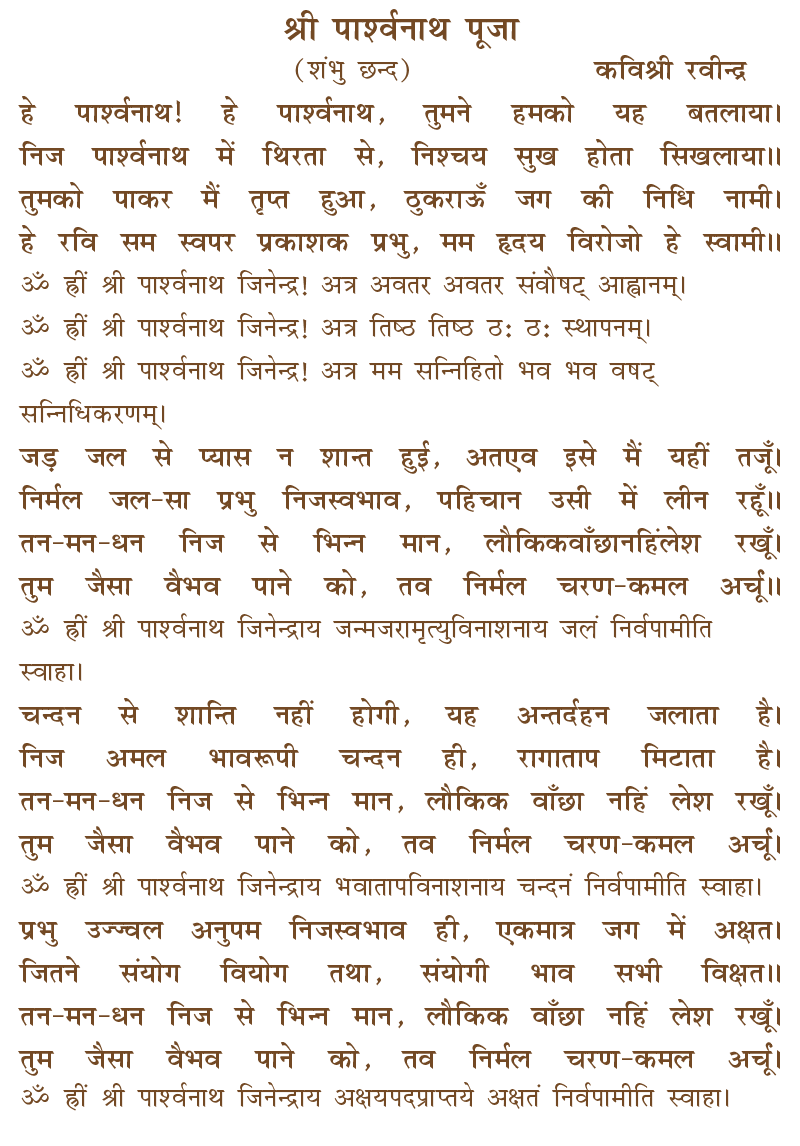 श्री पार्श्वनाथ पूजा
(शंभु छन्द) कविश्री रवीन्द्र
हे पार्श्वनाथ! हे पार्श्वनाथ, तुमने हमको यह बतलाया।
निज पार्श्वनाथ में थिरता से, निश्चय सुख होता सिखलाया॥
तुमको पाकर मैं तृप्त हुआ, ठुकराऊँ जग की निधि नामी।
हे रवि सम स्वपर प्रकाशक प्रभु, मम हृदय विरोजो हे स्वामी॥
ॐ ह्रीं श्री पार्श्वनाथ जिनेन्द्र! अत्र अवतर अवतर संवौषट् आह्वानम्।
ॐ ह्रीं श्री पार्श्वनाथ जिनेन्द्र! अत्र तिष्ठ तिष्ठ ठ: ठ: स्थापनम्।
ॐ ह्रीं श्री पार्श्वनाथ जिनेन्द्र! अत्र मम सन्निहितो भव भव वषट्
सन्निधिकरणम्।
जड़ जल से प्यास न शान्त हुई, अतएव इसे मैं यहीं तजूँ।
निर्मल जल-सा प्रभु निजस्वभाव, पहिचान उसी में लीन रहूँ॥
तन-मन-धन निज से भिन्न मान, लौकिकवाँछानहिंलेश रखूँ।
तुम जैसा वैभव पाने को, तव निर्मल चरण-कमल अर्चूं॥
ॐ ह्रीं श्री पार्श्वनाथ जिनेन्द्राय जन्मजरामृत्युविनाशनाय जलं निर्वपामीति
स्वाहा।
चन्दन से शान्ति नहीं होगी, यह अन्तर्दहन जलाता है।
निज अमल भावरूपी चन्दन ही, रागाताप मिटाता है।
तन-मन-धन निज से भिन्न मान, लौकिक वाँछा नहिं लेश रखूँ।
तुम जैसा वैभव पाने को, तव निर्मल चरण-कमल अर्चूं।
ॐ ह्रीं श्री पार्श्वनाथ जिनेन्द्राय भवातापविनाशनाय चन्दनं निर्वपामीति स्वाहा।
प्रभु उज्ज्वल अनुपम निजस्वभाव ही, एकमात्र जग में अक्षत।
जितने संयोग वियोग तथा, संयोगी भाव सभी विक्षत॥
तन-मन-धन निज से भिन्न मान, लौकिक वाँछा नहिं लेश रखूँ।
तुम जैसा वैभव पाने को, तव निर्मल चरण-कमल अर्चूं।
ॐ ह्रीं श्री पार्श्वनाथ जिनेन्द्राय अक्षयपदप्राप्तये अक्षतं निर्वपामीति स्वाहा।